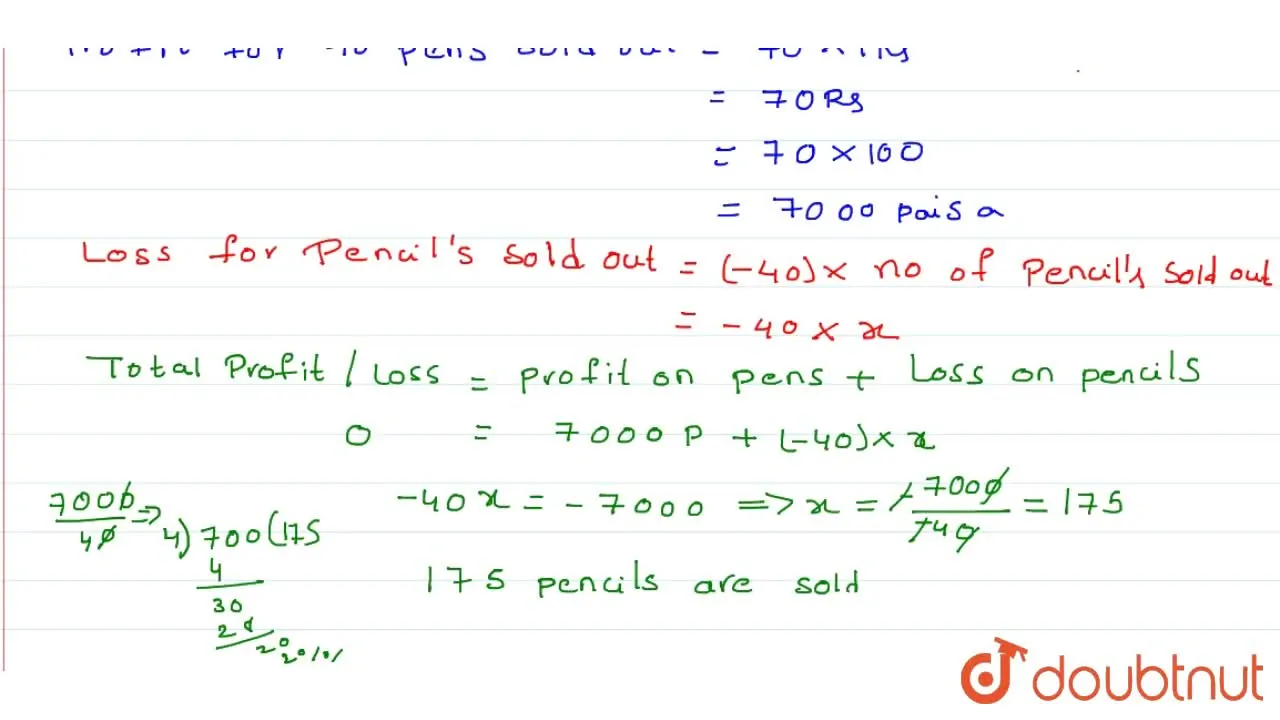 for pens sold out = 70 × 1 Rs
= 70 Rs
= 70 × 100
= 7000 paisa
Loss for Pencil's sold out = (-40) × no of Pencil's sold out
= - 40 × x
Total Profit / Loss = profit on pens + Loss on pencils
0 = 7000 P + (-40) × x
-40x = - 7000 => x = -7000/-40 = 175
7000/40 => 4) 700 (175
4
30
28
20
20
175 pencils are sold
doubtnut